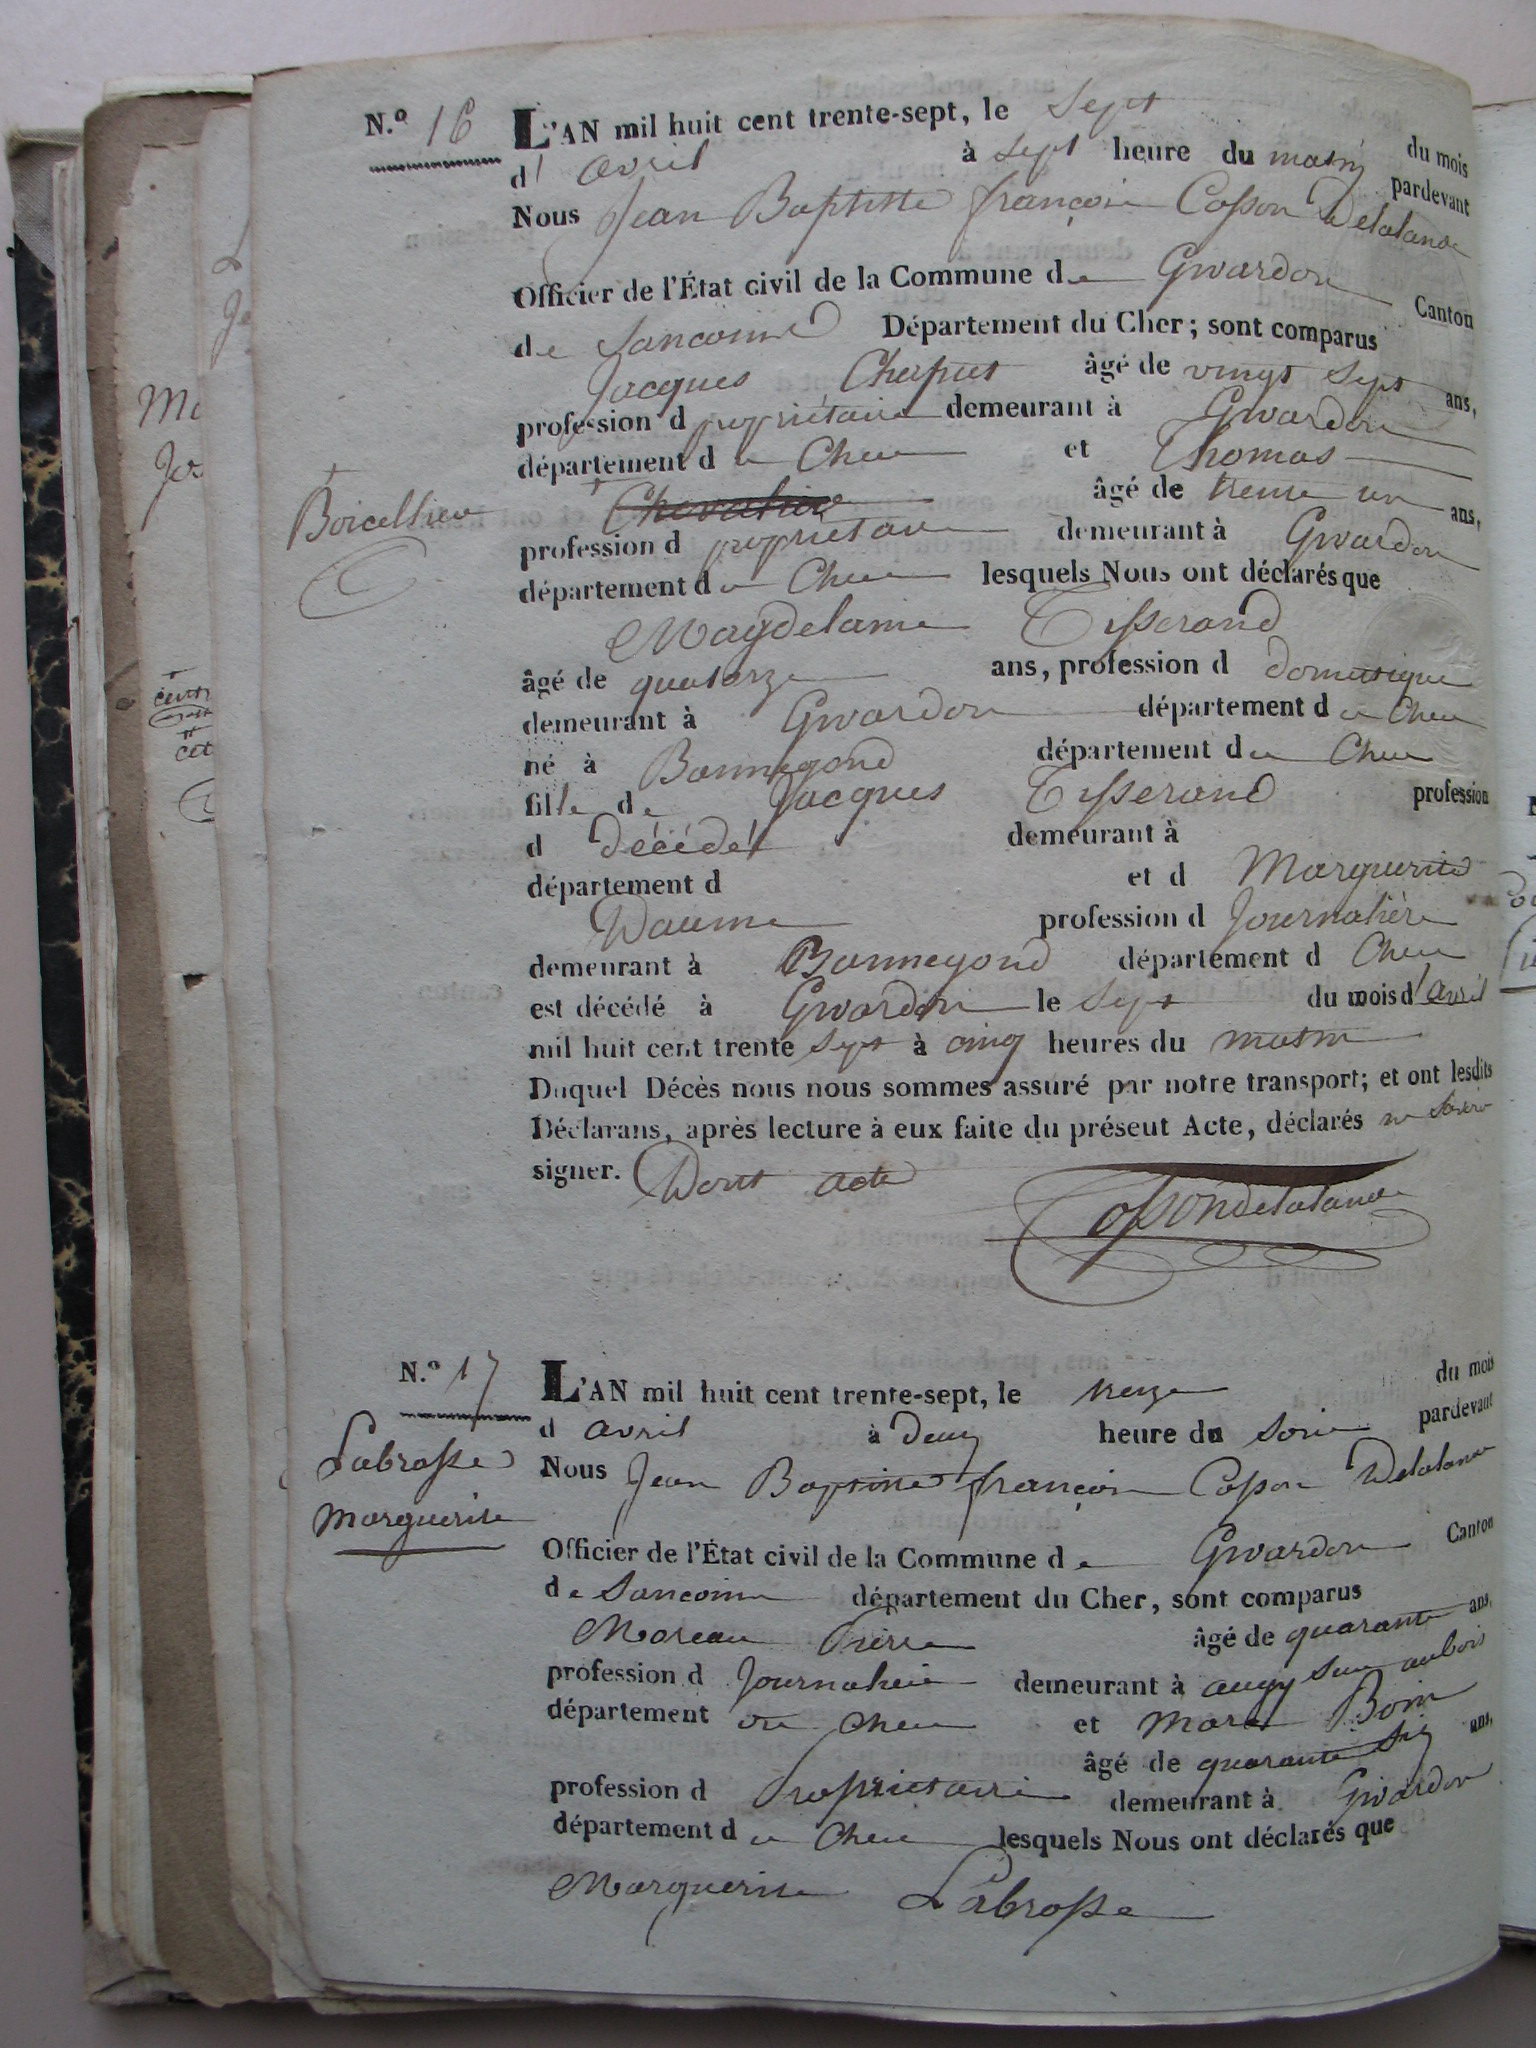 N.º 16
L'AN mil huit cent trente-sept, le Sept du mois
d' avril à Sept heure du matin pardevant
Nous Jean Baptiste françois Cosson Delalande
Officier de l'État civil de la Commune de Givardon Canton
de Sancoins Département du Cher; sont comparus
Jacques Chaput âgé de vingt Sept ans,
profession d propriétaire demeurant à Givardon
département du Cher et Thomas
Chevalier âgé de trente un ans,
profession d propriétaire demeurant à Givardon
département du Cher lesquels Nous ont déclarés que
Magdelaine Tisserand
âgé de quatorze ans, profession d domestique
demeurant à Givardon département du Cher
né à Bannegond département du Cher
fille de Jacques Tisserand profession
d décédé demeurant à
département d et d Marguerite
Daume profession d Journalière
demeurant à Bannegond département d Cher
est décédé à Givardon le Sept du mois d'avril
mil huit cent trente Sept à cinq heures du matin
Duquel Décès nous nous sommes assuré par notre transport; et ont lesdits
Déclarans, après lecture à eux faite du préseut Acte, déclarés ne Savoir
signer. Dont acte
Cossondelalande
N.º 17
Labrosse
Marguerite
L'AN mil huit cent trente-sept, le treize du mois
d avril à Deux heure du Soir pardevant
Nous Jean Baptiste françois Cosson Delalande
Officier de l'État civil de la Commune de Givardon Canton
de Sancoins département du Cher, sont comparus
Moreau Pierre âgé de quarante ans,
profession d Journalier demeurant à augy Sur aubois
département du Cher et Marc Boin
âgé de quarante Six ans,
profession d Propriétaire demeurant à Givardon
département du Cher lesquels Nous ont déclarés que
Marguerite Labrosse